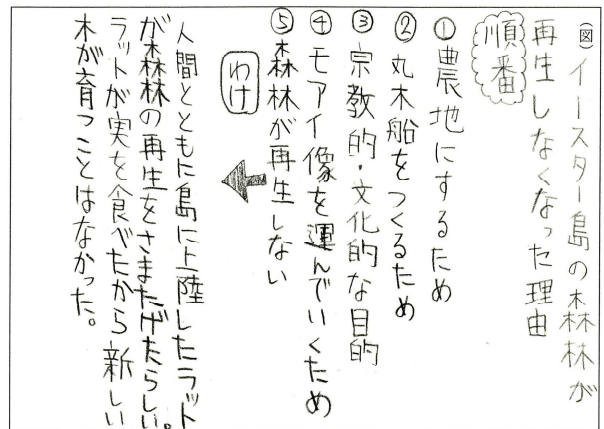 図 イースター島の森林が
再生しなくなった理由
順番
①農地にするため
②丸木船をつくるため
③宗教的・文化的な目的
④モアイ像を運んでいくため
⑤森林が再生しない
わけ
人間とともに島に上陸したラット
が森林の再生をさまたげたらしい。
ラットが実を食べたから新しい
木が育つことはなかった。